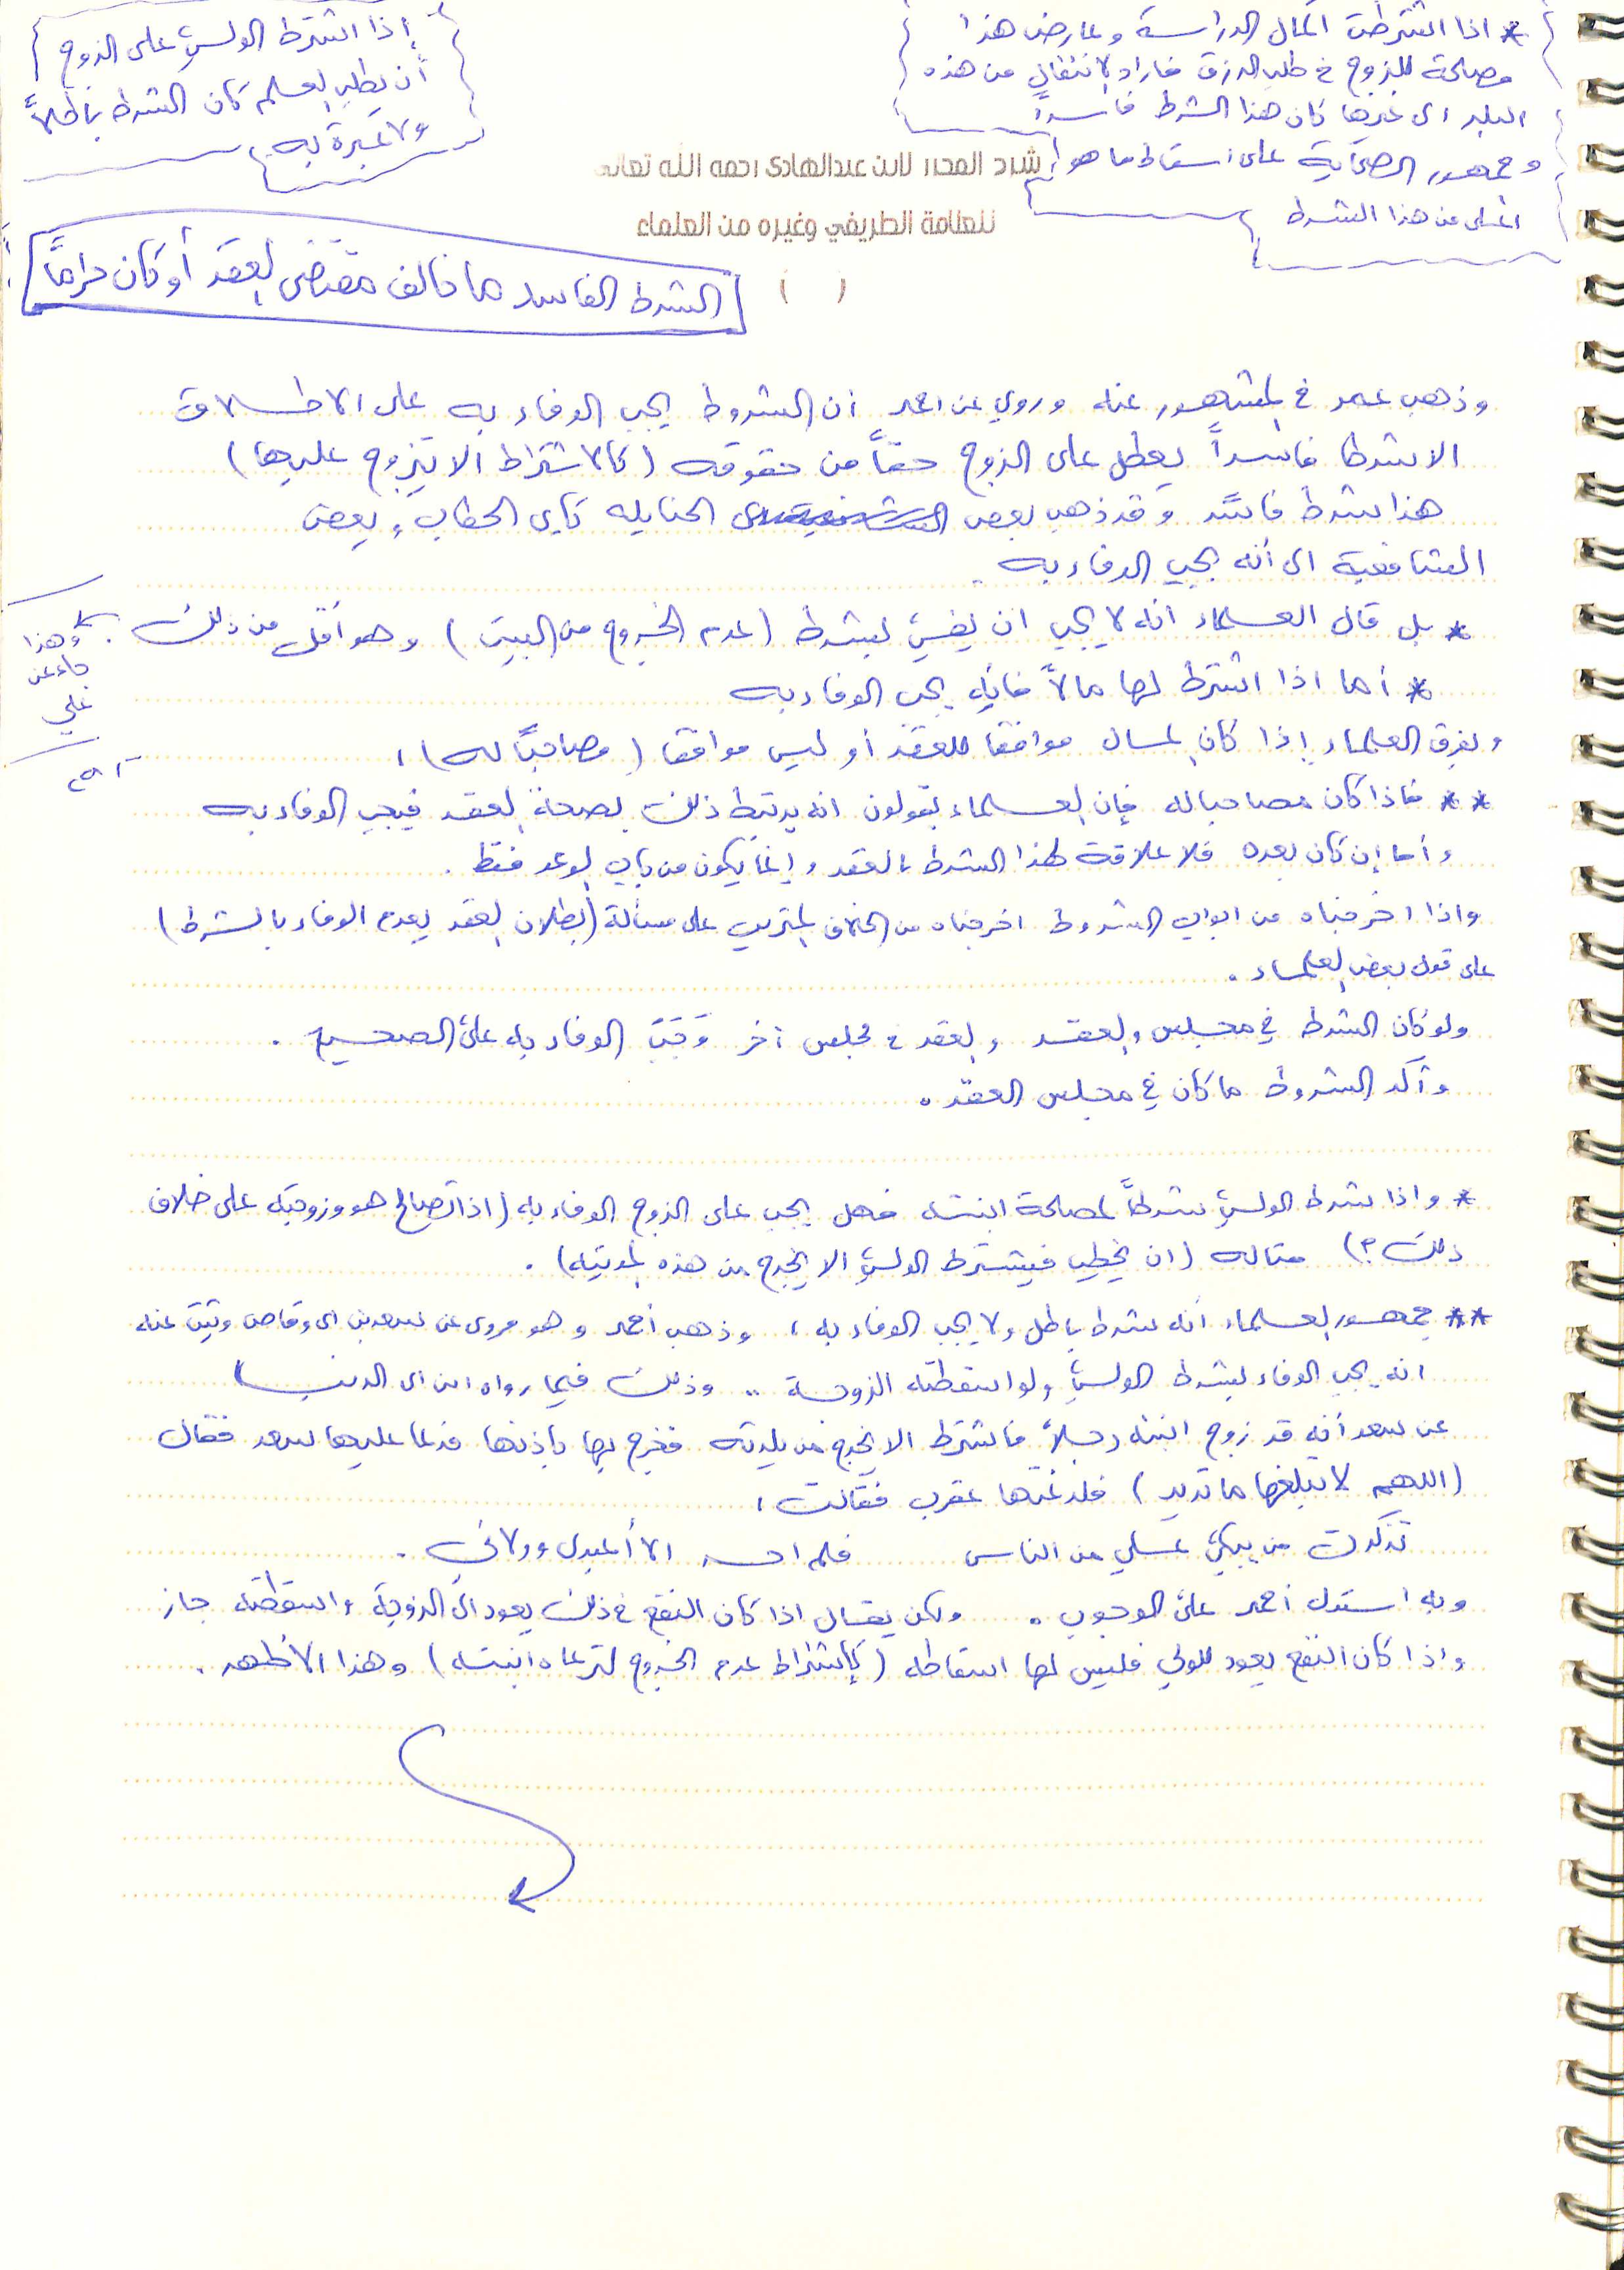 * اذا اشترطت اكمال الدراسة وعارض هذا
مصلحة للزوج في طلب الرزق فأراد الانتقال من هذه
البلد الى غيرها كان هذا الشرط فاسداً
وجمهور الصحابة على اسقاط ما هو
أعلى من هذا الشرط
إذا اشترط الولي على الزوج
أن يطلب العلم كان الشرط باطلاً
ولا عبرة به
شرح المحرر لابن عبدالهادي رحمه الله تعالى
للعلامة الطريفي وغيره من العلماء
( )
الشرط الفاسد ما خالف مقتضى العقد أو كان حراماً
وذهب عمر في المشهور عنه وروي عن احمد أن الشروط يجب الوفاء به على الاطلاق
الا شرطا فاسداً يعطل على الزوج حقاً من حقوقه (كالاشتراط الا يتزوج عليها)
هذا شرط فاسد وقد ذهب بعض الحنابله كأبي الخطاب وبعض
الشافعية الى أنه يجب الوفاء به
* بل قال العلماء انه لا يجب ان يفي بشرط (عدم الخروج من البيت) وهو أقل من ذلك
وهذا
جاء عن
علي
* أما اذا اشترط لها مالاً فإنه يجب الوفاء به
ويفرق العلماء إذا كان المال موافقا للعقد أو ليس موافقا (مصاحباً له) ،
** فاذا كان مصاحبا له فإن العلماء يقولون انه يرتبط ذلك بصحة العقد فيجب الوفاء به
وأما إن كان بعده فلا علاقة لهذا الشرط بالعقد وإنما يكون من باب الوعد فقط .
واذا اخرجناه من ابواب الشروط اخرجناه من الخلاف المترتب على مسألة (بطلان العقد بعدم الوفاء بالشرط)
على قول بعض العلماء .
ولو كان الشرط في مجلس والعقد في مجلس آخر وَجَبَ الوفاء به على الصحيح .
وآكد الشروط ما كان في مجلس العقد .
* واذا شرط الولي شرطاً لمصلحة ابنته فهل يجب على الزوج الوفاء به (اذا تصالح هو وزوجته على خلاف
ذلك ؟) مثاله (ان يخطب فيشترط الولي الا يخرج من هذه المدينه) .
** جمهور العلماء أنه شرط باطل ولا يجب الوفاء به ، وذهب أحمد وهو مروي عن سعد بن ابي وقاص وثبت عنه
انه يجب الوفاء بشرط الولي ولو اسقطته الزوجة .. وذلك فيما رواه ابن ابي الدنيا
عن سعد أنه قد زوج ابنته رجلاً فاشترط الا يخرج من بلدته فخرج بها بإذنها فدعا عليها سعد فقال
(اللهم لا تبلغها ما تريد) فلدغتها عقرب فقالت ،
تذكرت من يبكي علي من الناس فلم الا أعبدي وولائي .
وبه استدل أحمد على الوجوب . ولكن يقال اذا كان النفع في ذلك يعود الى الزوجة واسقطته جاز
واذا كان النفع يعود للولي فليس لها اسقاطه (كاشتراط عدم الخروج لترعاه ابنته) وهذا الأظهر .